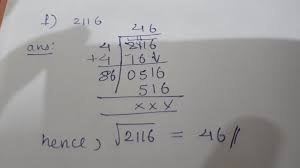 f) 2116
46
ans: 4 2116
+4 16↓
86 0516
516
x x x
hence, √2116 = 46//